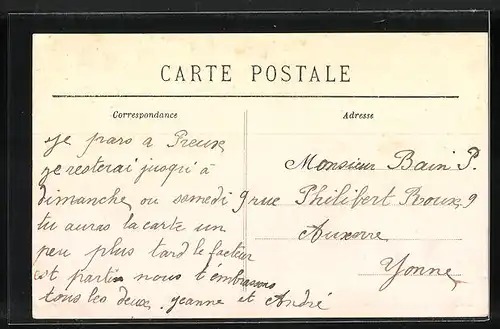 CARTE POSTALE
Correspondance
Adresse
je pars a
je resterai jusqu'à
dimanche ou samedi
tu auras la carte un
peu plus tard le facteur
est partis nous t'embrassons
tous les deux. Jeanne et André
Monsieur Bain P.
9 rue Philibert Roux 9
Auxerre
Yonne